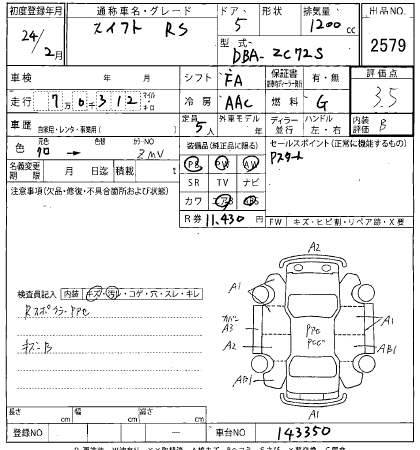 初度登録年月 通称車名・グレード ドア 形状 排気量 出品NO
24/2月 スイフト RS 5 1200cc 2579
型式 DBA-ZC72S
車検 年 月 シフト FA 保証書 有・無 評価点
走行 7万0千312 マイル・キロ 冷房 AAC 燃料 G 3.5
車歴 自家用・レンタ・事業用( ) 定員 5人 外車モデル 年 ディーラー 並行 ハンドル 左・右 内装 B
色 元色 クロ → 色替 カラーNO ZMV 装備品(純正品に限る) セールスポイント(正常に機能するもの)
名義変更期限 月 日迄 積載 PS PW AW Pスタート
注意事項(欠品・修復・不具合箇所および状態) SR TV ナビ
カワ エアB ABS
R券 11,430円 FW キズ・ヒビ割・リペア跡・X要
A2
検査員記入 内装 キズ・汚れ・コゲ・穴・スレ・キレ A1 A1
Rスポイラーアアセ
A3 A1
キズB A2 AB1
AB1
A1
長さ cm 幅 cm 高さ cm
登録NO 車台NO 143350